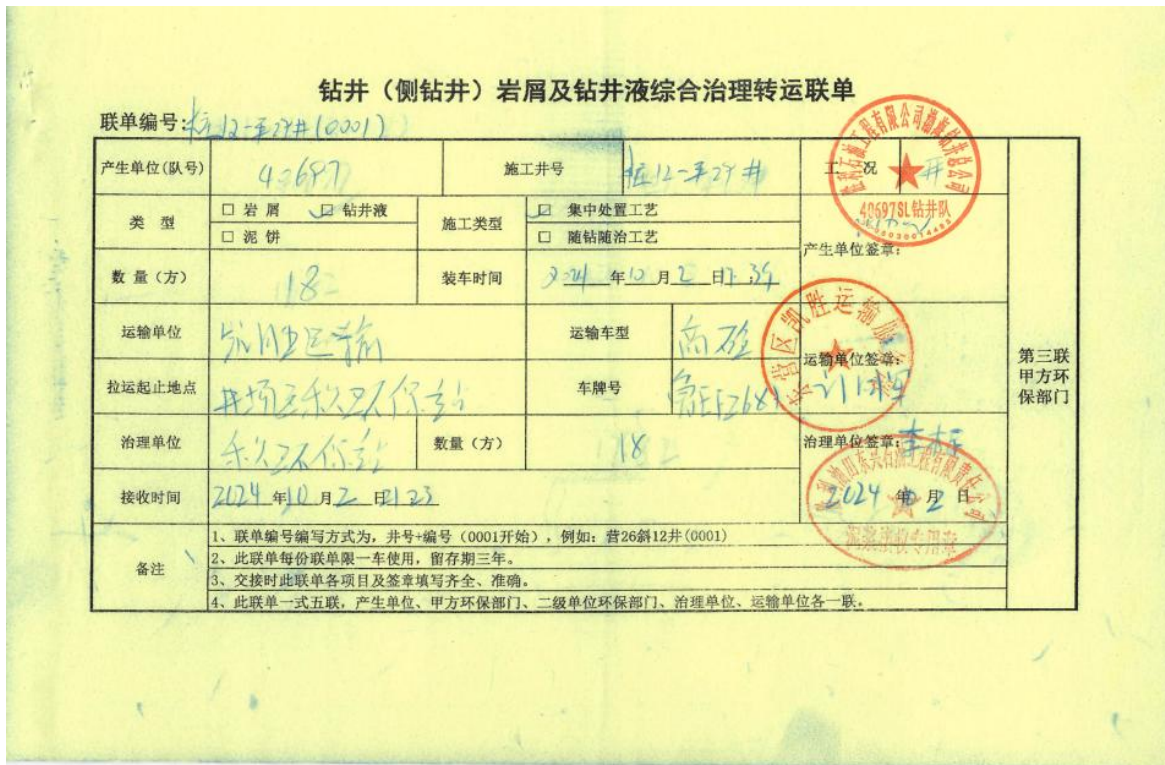 钻井（侧钻井）岩屑及钻井液综合治理转运联单
联单编号：桩12-平29井(0001)
产生单位(队号) 40697 施工井号 桩12-平29井 工况 井
类 型 □ 岩 屑 □ 钻井液 施工类型 □ 集中处置工艺
□ 泥 饼 □ 随钻随治工艺
40697SL钻井队
产生单位签章：
数 量（方） 18 装车时间 2024 年 10 月 2 日
运输单位 运输 运输车型 运输单位签章：
拉运起止地点 井场至 环保站 车牌号
治理单位 环保站 数量（方） 18 治理单位签章：
接收时间 2024 年 10 月 2 日 21 23 2024 年 月 2 日
泥浆接收专用章
备注
1、联单编号编写方式为，井号+编号（0001开始），例如：营26斜12井(0001)
2、此联单每份联单限一车使用，留存期三年。
3、交接时此联单各项目及签章填写齐全、准确。
4、此联单一式五联，产生单位、甲方环保部门、二级单位环保部门、治理单位、运输单位各一联。
第三联
甲方环
保部门